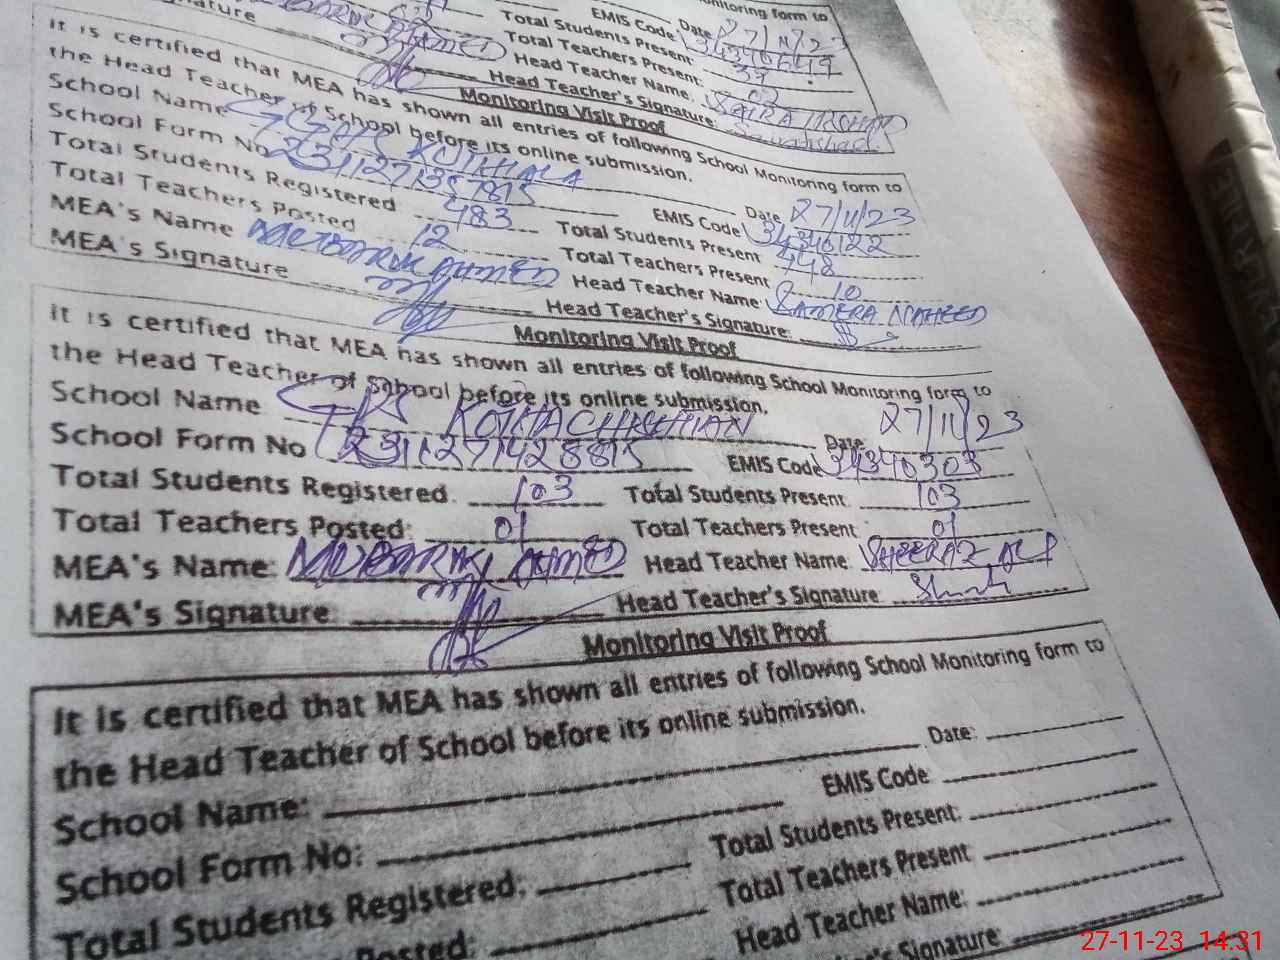 Monitoring form to
Date 27/11/23
EMIS Code: 34340647
Total Students Present: 39
Total Teachers Present: 02
Head Teacher Name: SAIRA URSHAD
Signature Head Teacher's Signature:
Monitoring Visit Proof
It is certified that MEA has shown all entries of following School Monitoring form to
the Head Teacher of School before its online submission.
School Name KOTHALA Date 27/11/23
School Form No 2311271357815 EMIS Code 34340122
Total Students Registered 483 Total Students Present 448
Total Teachers Posted 12 Total Teachers Present 10
MEA's Name MUBARIK AHMED Head Teacher Name: SAMERA NAHEED
MEA's Signature Head Teacher's Signature:
Monitoring Visit Proof
It is certified that MEA has shown all entries of following School Monitoring form to
the Head Teacher of School before its online submission.
School Name Date 27/11/23
School Form No 2311271428815 EMIS Code 34340303
Total Students Registered 103 Total Students Present 103
Total Teachers Posted: 01 Total Teachers Present 01
MEA's Name: MUBARIK AHMED Head Teacher Name: SHEERAZ ALI
MEA's Signature Head Teacher's Signature
Monitoring Visit Proof
It is certified that MEA has shown all entries of following School Monitoring form to
the Head Teacher of School before its online submission.
School Name: Date:
School Form No: EMIS Code
Total Students Registered: Total Students Present:
Posted: Total Teachers Present
Head Teacher Name:
Signature:
27-11-23 14:31